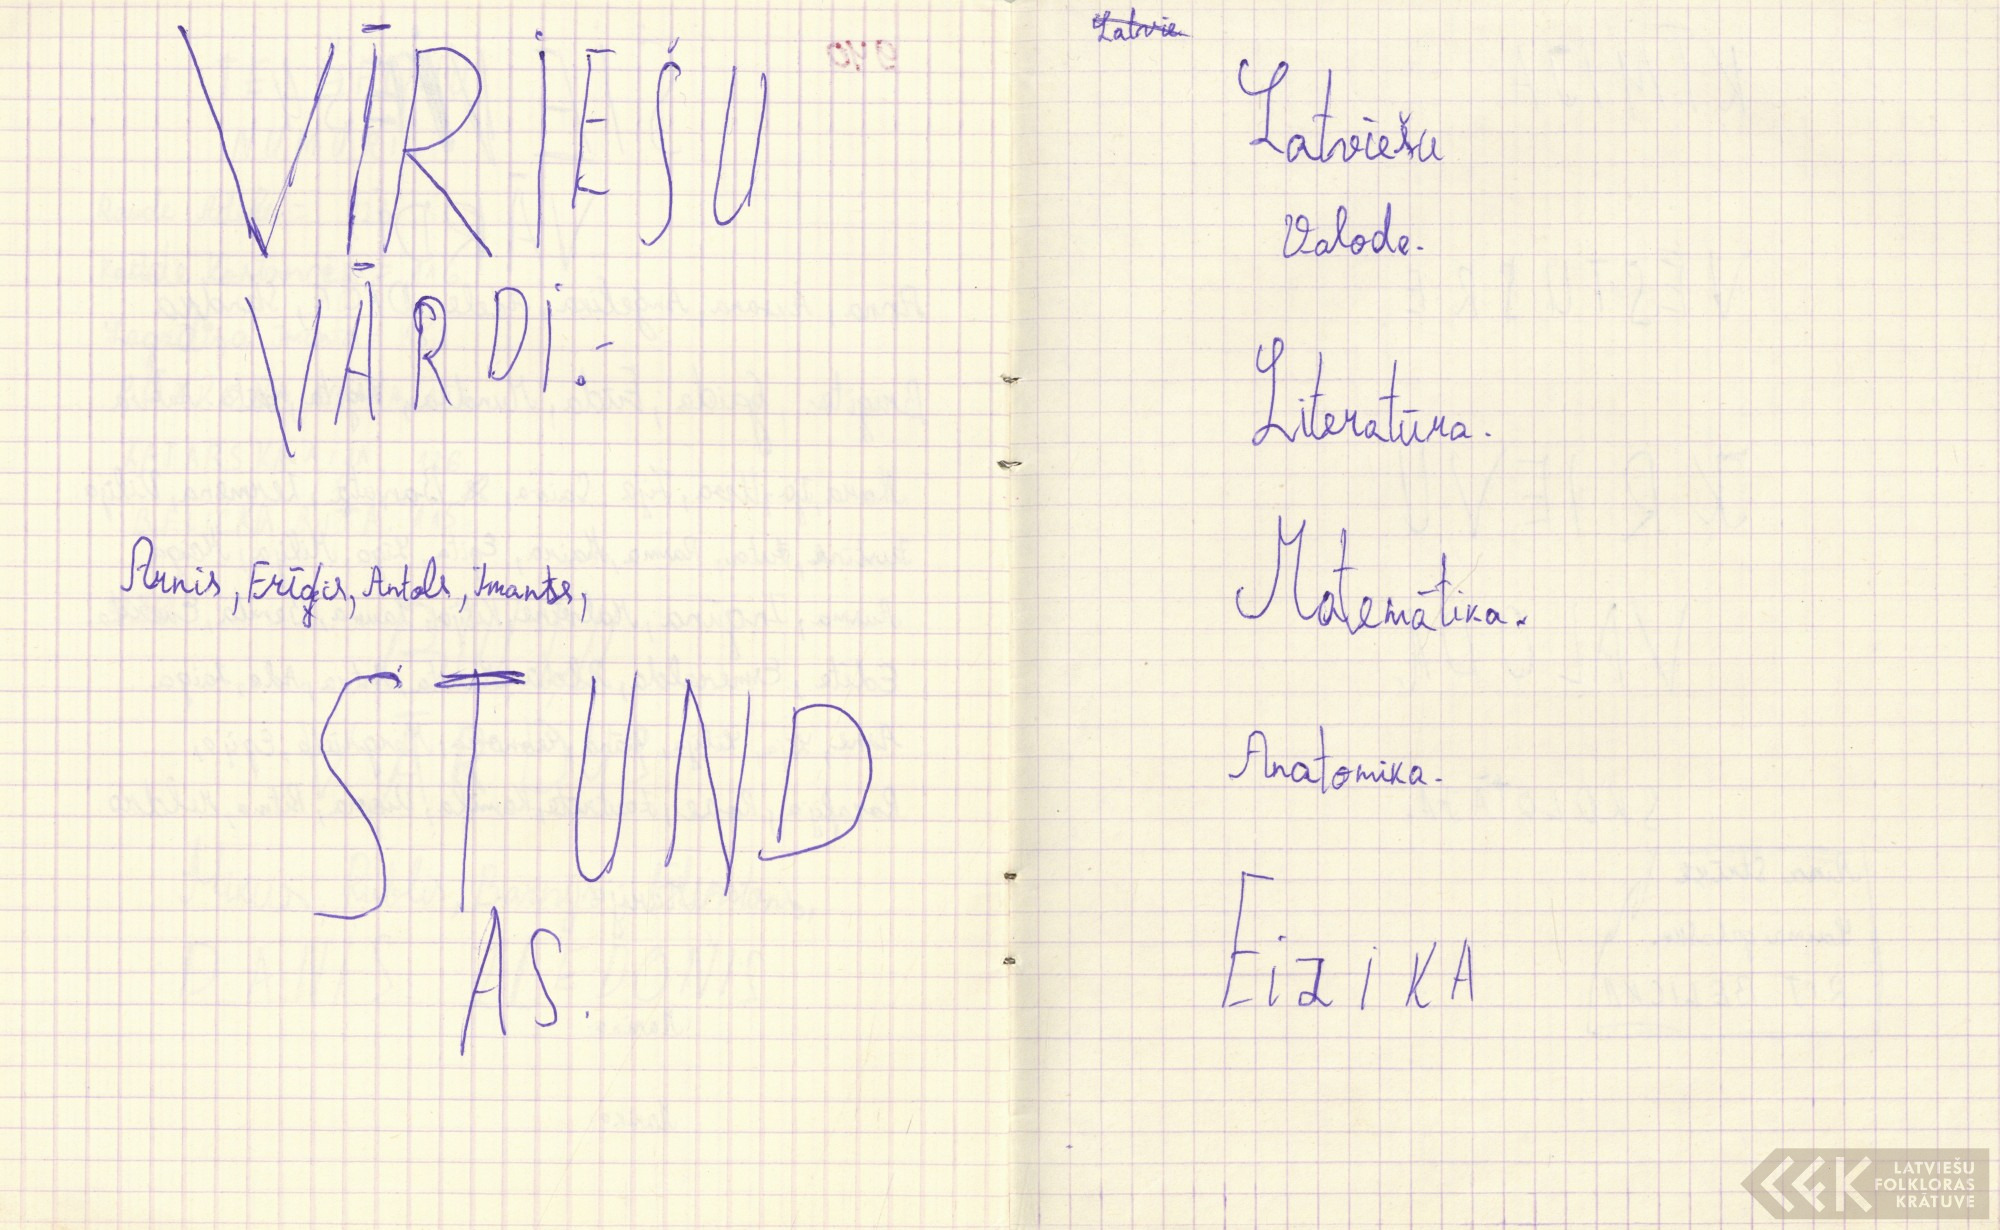 VĪRIEŠU
VĀRDI.-
Arnis, Erīģis, Antols, Imants,
STUND
AS.
Latvie
Latviešu
Valode.
Literatūra.
Matemātika.
Anatomika.
FiziKA
LATVIEŠU
FOLKLORAS
KRĀTUVE